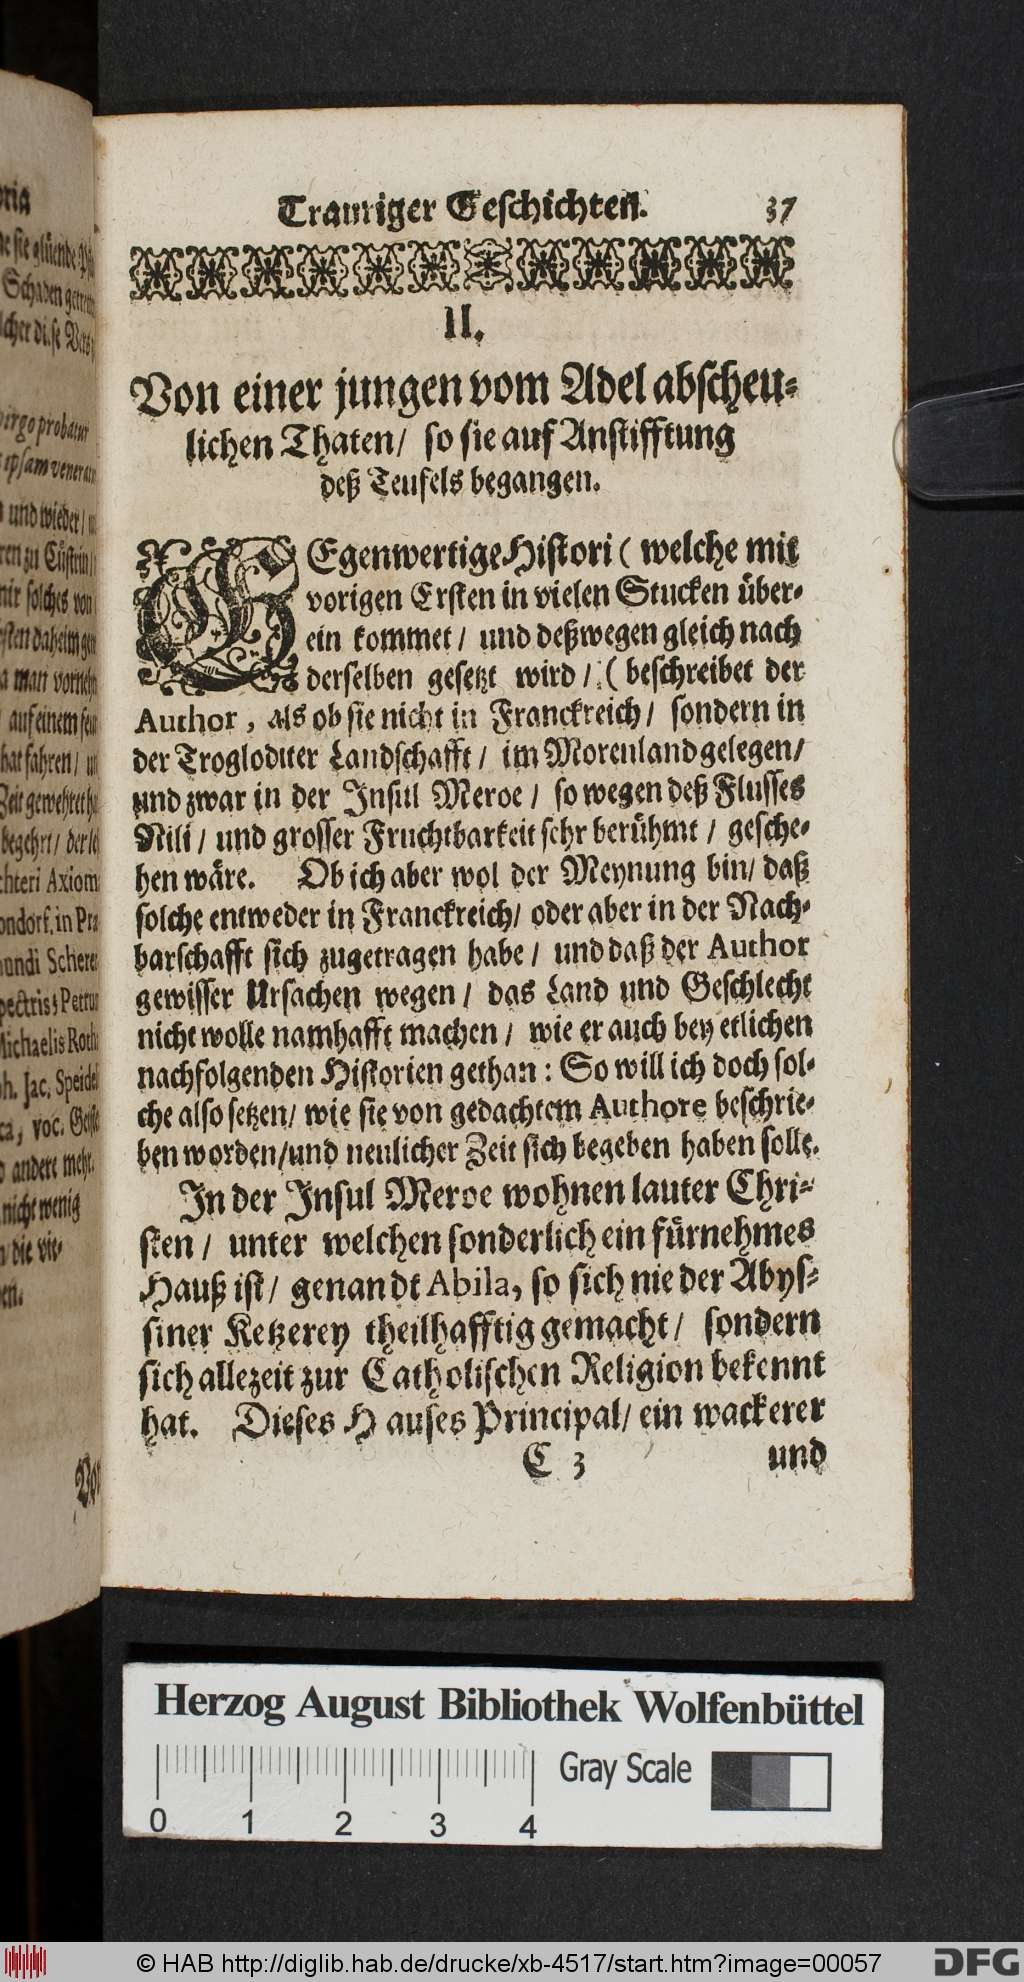 Trauriger Geschichten. 37
II.
Von einer jungen vom Adel abscheu-
lichen Thaten/ so sie auf Anstifftung
deß Teufels begangen.
GEgenwertige Histori ( welche mit
vorigen Ersten in vielen Stucken über-
ein kommet/ und deßwegen gleich nach
derselben gesetzt wird/ ( beschreibet der
Author, als ob sie nicht in Franckreich/ sondern in
der Trogloditer Landschafft/ im Morenland gelegen/
und zwar in der Insul Meroe/ so wegen deß Flusses
Nili/ und grosser Fruchtbarkeit sehr berühmt/ gesche-
hen wäre. Ob ich aber wol der Meynung bin/ daß
solche entweder in Franckreich/ oder aber in der Nach-
barschafft sich zugetragen habe/ und daß der Author
gewisser Ursachen wegen/ das Land und Geschlecht
nicht wolle namhafft machen/ wie er auch bey etlichen
nachfolgenden Historien gethan: So will ich doch sol-
che also setzen/ wie sie von gedachtem Authore beschrie-
ben worden/und neulicher Zeit sich begeben haben solle.
In der Insul Meroe wohnen lauter Chri-
sten/ unter welchen sonderlich ein fürnehmes
Hauß ist/ genandt Abila, so sich nie der Abys-
siner Ketzerey theilhafftig gemacht/ sondern
sich allezeit zur Catholischen Religion bekennt
hat. Dieses Hauses Principal/ ein wackerer
C 3 und
Herzog August Bibliothek Wolfenbüttel
Gray Scale
0 1 2 3 4
© HAB http://diglib.hab.de/drucke/xb-4517/start.htm?image=00057
DFG